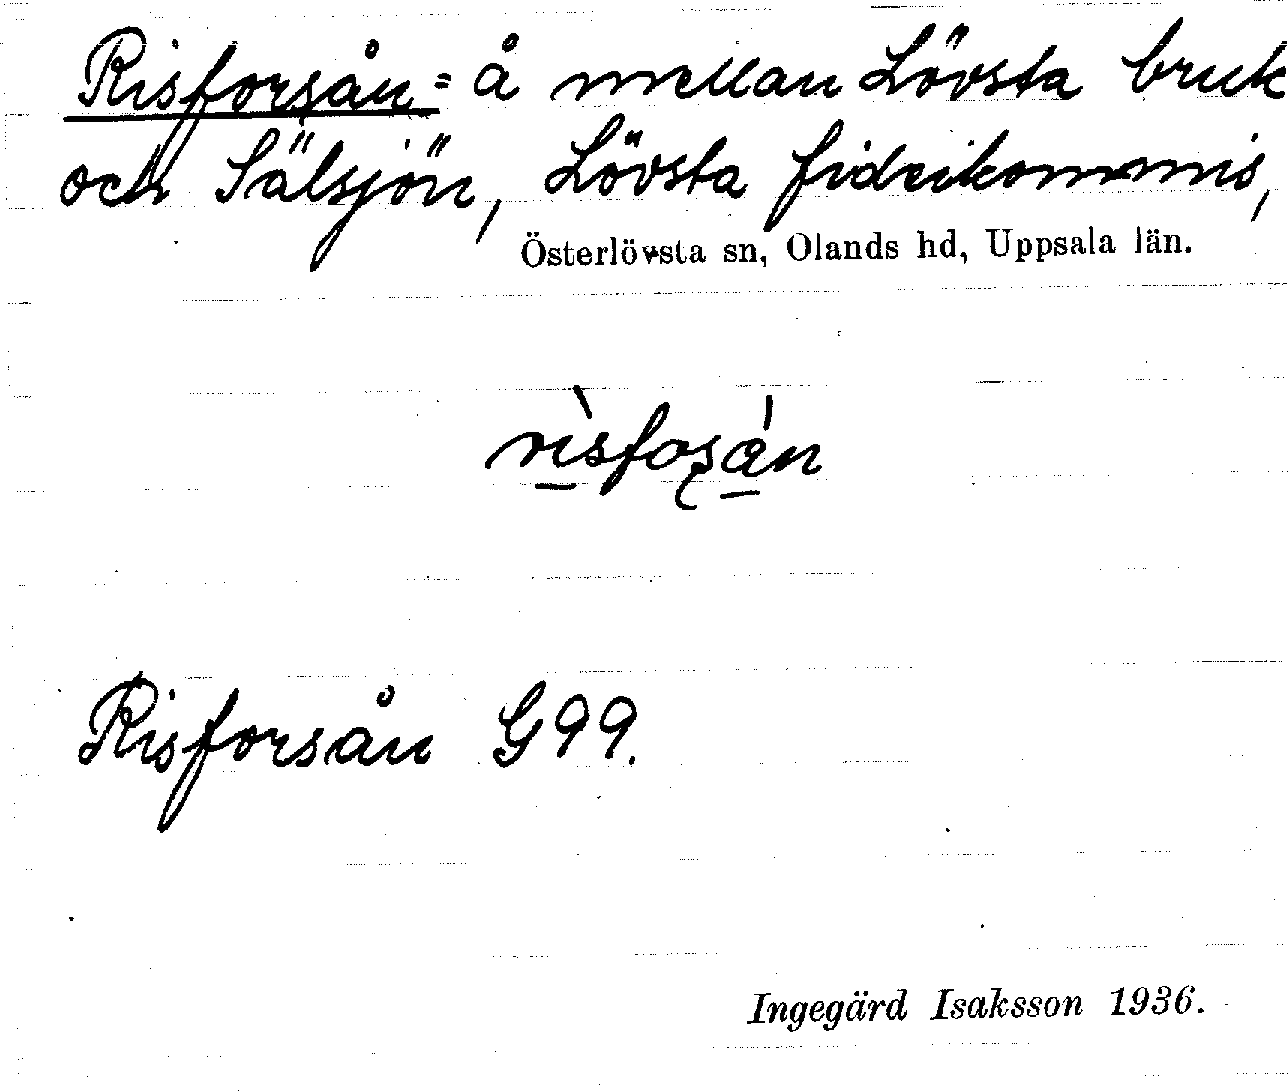 Risforsån = å mellan Lövsta bruk
och Sälsjön, Lövsta fideikommis,
Österlövsta sn, Olands hd, Uppsala län.
rìsfoʂán
Risforsån G 99.
Ingegärd Isaksson 1936.